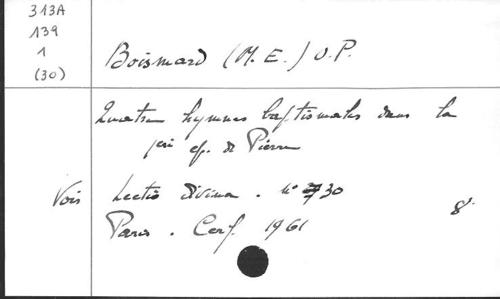 313A
139
1
(30)
Boismard (M. E.) O.P.
Quatre hymnes baptismales dans la
1ère ép. de Pierre
Vois Lectio divina. n° 30
Paris. Cerf. 1961 8°